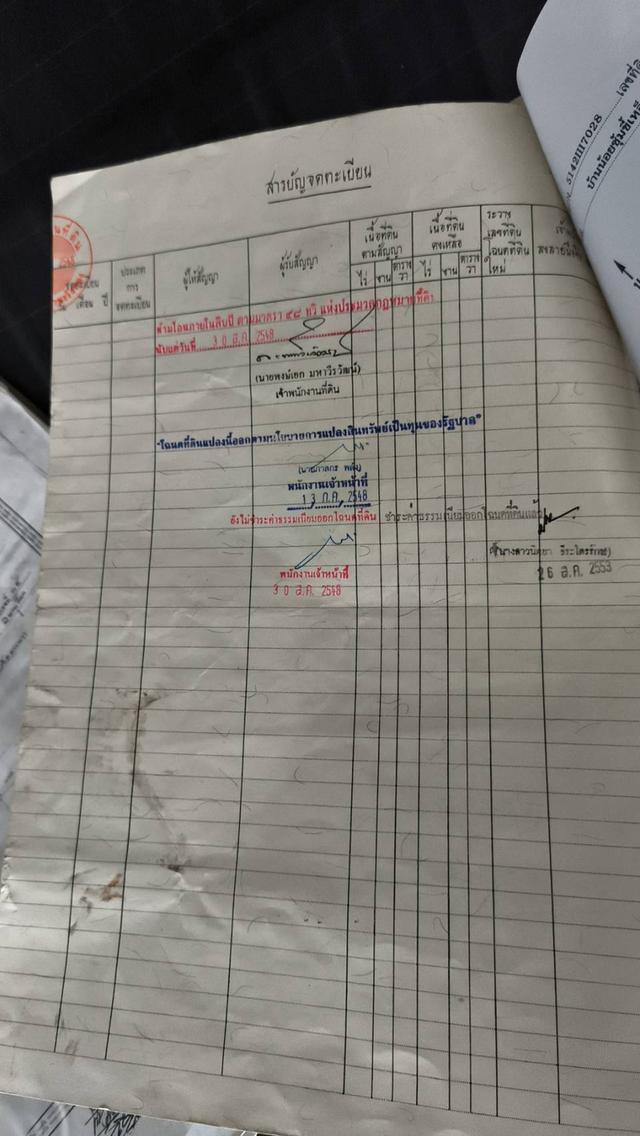 5142III7028
เลขที่ดิ
บ้านน้อยซุ้มขี้เหล็
สารบัญจดทะเบียน
จดทะเบียน
เดือน ปี
ประเภท
การ
จดทะเบียน
ผู้ให้สัญญา
ผู้รับสัญญา
เนื้อที่ดิน
ตามสัญญา
ไร่ งาน ตาราง
วา
เนื้อที่ดิน
คงเหลือ
ไร่ งาน ตาราง
วา
ระวาง
เลขที่ดิน
โฉนดที่ดิน
ใหม่
ห้ามโอนภายในสิบปี ตามมาตรา ๕๘ ทวิ แห่งประมวลกฎหมายที่ดิน
นับแต่วันที่ 30 ส.ค. 2548
(นายพงษ์เอก มหาวีรวัฒน์)
เจ้าพนักงานที่ดิน
"โฉนดที่ดินแปลงนี้ออกตามนโยบายการแปลงสินทรัพย์เป็นทุนของรัฐบาล"
พนักงานเจ้าหน้าที่
13 ก.ค. 2548
ยังไม่ชำระค่าธรรมเนียมออกโฉนดที่ดิน ชำระค่าธรรมเนียมออกโฉนดที่ดินแล้ว
พนักงานเจ้าหน้าที่
30 ส.ค. 2548
26 ส.ค. 2553